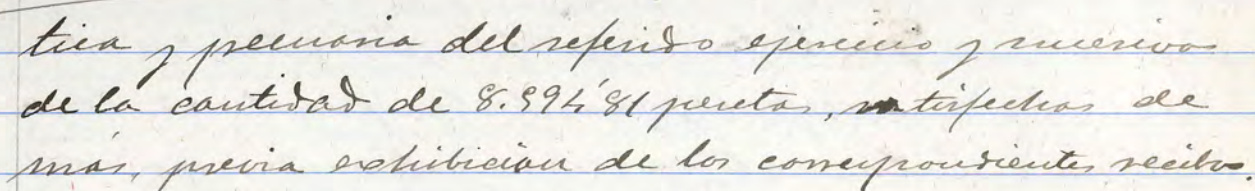 tica y pecuaria del referido ejercicio y sucesivos
de la cantidad de 8.994'81 pesetas, satisfechas de
más, previa exhibición de los correspondientes recibos.